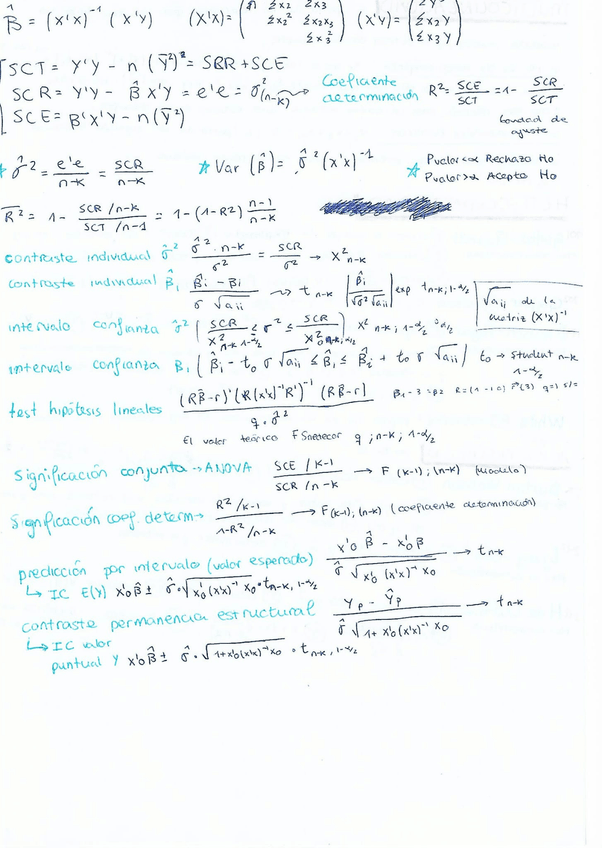 β̂ = (x'x)⁻¹ (x'y)   (x'x) = ( n Σx2 Σx3 / Σx2² Σx2x3 / Σx3² )   (x'y) = ( ΣY / Σx2Y / Σx3Y )
SCT = Y'Y - n (Ȳ²)² = SCR + SCE
SCR = Y'Y - β̂ X'Y = e'e = σ̂² (n-k)   Coeficiente determinación R² = SCE/SCT = 1 - SCR/SCT
SCE = β'X'Y - n(Ȳ²)   bondad de ajuste
☆ σ̂² = e'e/n-k = SCR/n-k   ☆ Var (β̂) = σ̂² (x'x)⁻¹   ☆ Pvalor<α Rechazo Ho
Pvalor>α Acepto Ho
R̄² = 1 - SCR/n-k / SCT/n-1 = 1 - (1-R²) n-1/n-k
contraste individual σ̂²   σ̂² · n-k / σ² = SCR/σ² → X² n-k
contraste individual β̂i   β̂i - βi / σ √aii → t n-k   | β̂i / √σ² √aii | exp t n-k; 1-α/2   √aii de la matriz (x'x)⁻¹
intervalo confianza σ̂² ( SCR / X² n-k 1-α/2 ≤ σ² ≤ SCR / X² n-k, α/2 ) X² n-k; 1-α/2 o α/2
intervalo confianza βi ( β̂i - to σ √aii ≤ β̂i ≤ β̂i + to σ √aii ) to → Student n-k 1-α/2
test hipótesis lineales   (Rβ̂-r)' (R(x'x)⁻¹R')⁻¹ (Rβ̂-r) / q · σ̂²
El valor teórico F Snedecor q ; n-k ; 1-α/2
Significación conjunta → ANOVA   SCE / k-1 / SCR / n-k → F (k-1); (n-k) (modelo)
Significación coef. determ →   R² / k-1 / 1-R² / n-k → F (k-1); (n-k) (coeficiente determinación)
predicción por intervalo (valor esperado)   x'o β̂ - x'o β / σ̂ √x'o (x'x)⁻¹ xo → t n-k
↳ IC E(Y) x'o β̂ ± σ̂ · √x'o (x'x)⁻¹ xo · t n-k, 1-α/2
contraste permanencia estructural   Yp - Ŷp / σ̂ √1 + x'o (x'x)⁻¹ xo → t n-k
↳ IC valor
puntual Y x'o β̂ ± σ̂ · √1+x'o (x'x)⁻¹ xo · t n-k, 1-α/2